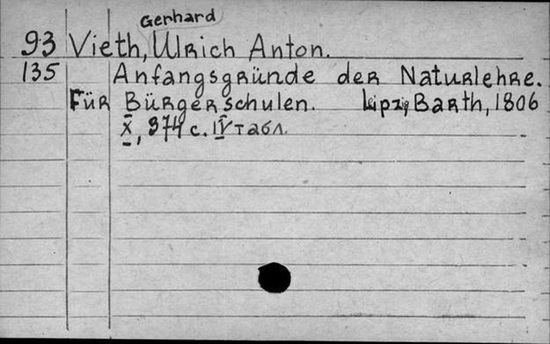 Gerhard
93 Vieth, Ulrich Anton.
135 Anfangsgründe der Naturlehre.
Für Bürgerschulen. Lipzig, Barth, 1806
X, 374 с. IV табл.